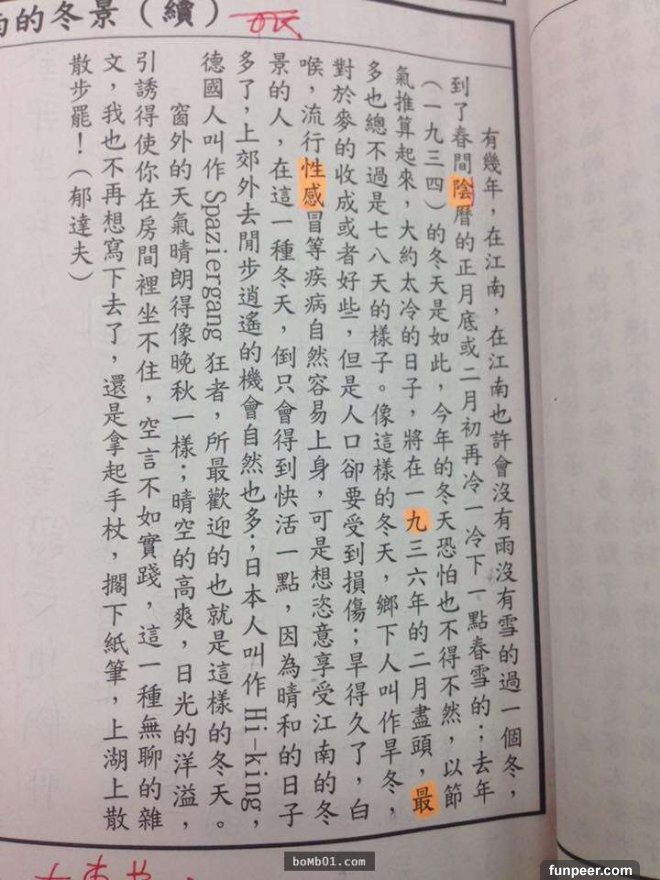 的冬景（續）
有幾年，在江南，在江南也許會沒有雨沒有雪的過一個冬，
到了春間陰曆的正月底或二月初再冷一冷下一點春雪的；去年
（一九三四）的冬天是如此，今年的冬天恐怕也不得不然，以節
氣推算起來，大約太冷的日子，將在一九三六年的二月盡頭，最
多也總不過是七八天的樣子。像這樣的冬天，鄉下人叫作旱冬，
對於麥的收成或者好些，但是人口卻要受到損傷；旱得久了，白
喉，流行性感冒等疾病自然容易上身，可是想恣意享受江南的冬
景的人，在這一種冬天，倒只會得到快活一點，因為晴和的日子
多了，上郊外去閒步逍遙的機會自然也多；日本人叫作 Hi-king,
德國人叫作 Spaziergang 狂者，所最歡迎的也就是這樣的冬天。
窗外的天氣晴朗得像晚秋一樣；晴空的高爽，日光的洋溢，
引誘得使你在房間裡坐不住，空言不如實踐，這一種無聊的雜
文，我也不再想寫下去了，還是拿起手杖，擱下紙筆，上湖上散
散步罷！（郁達夫）
boMb01.com
funpeer.com